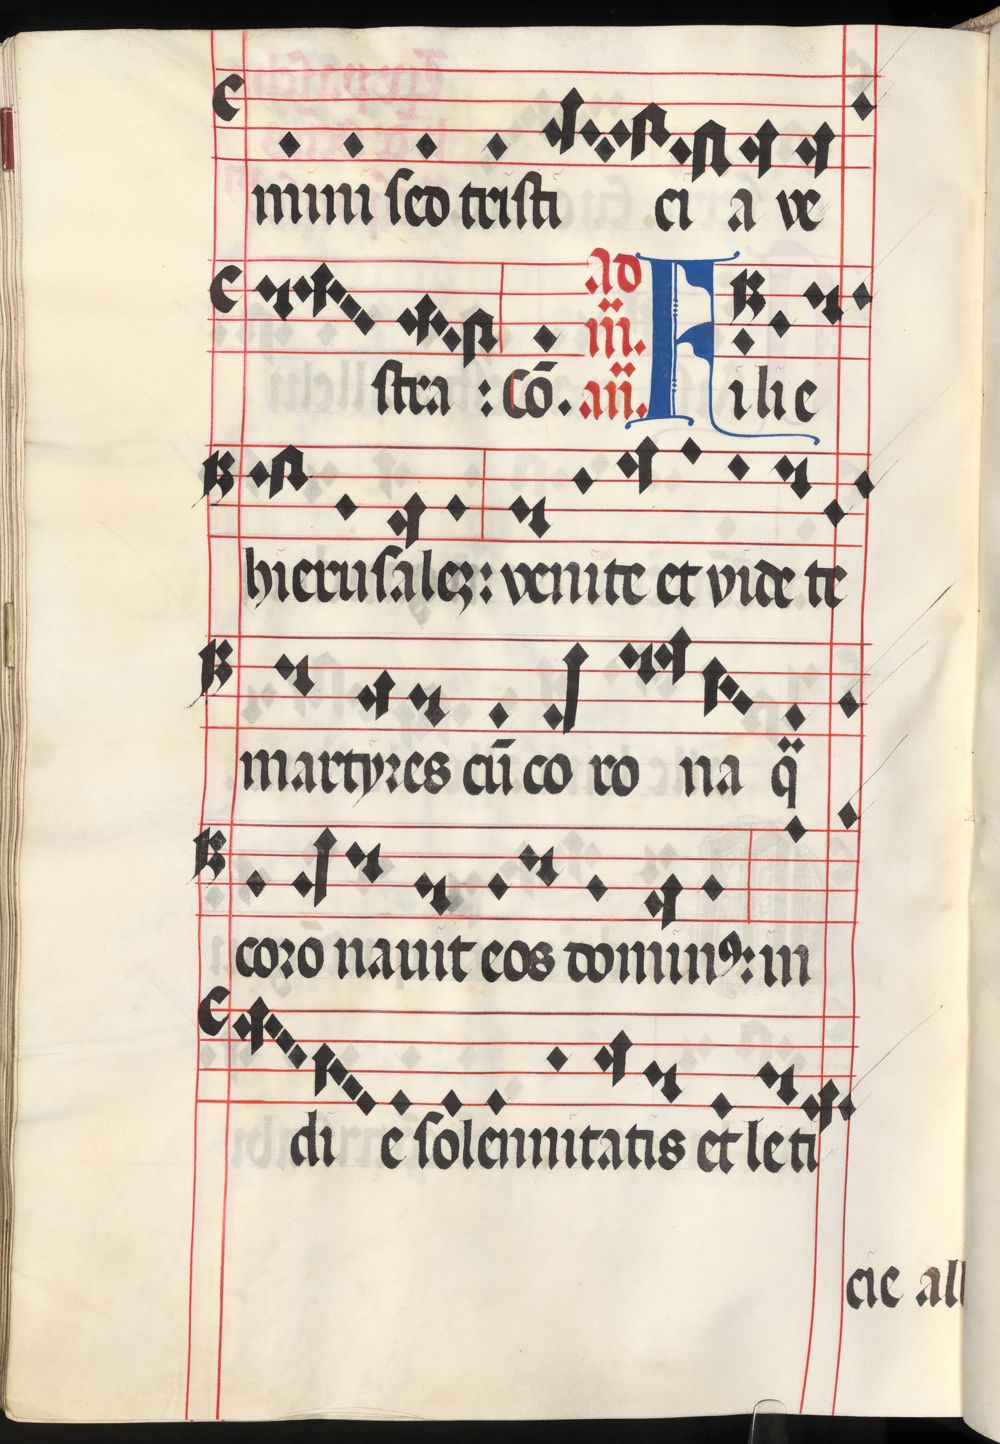 mini sed tristi ci a ve
stra : Cō. ad m̈. añ. Filie
hierusalez : venite et vide te
martyres cū co ro na q̈
coro navit eos dominꝰ : in
di e solennitatis et leti
cie all